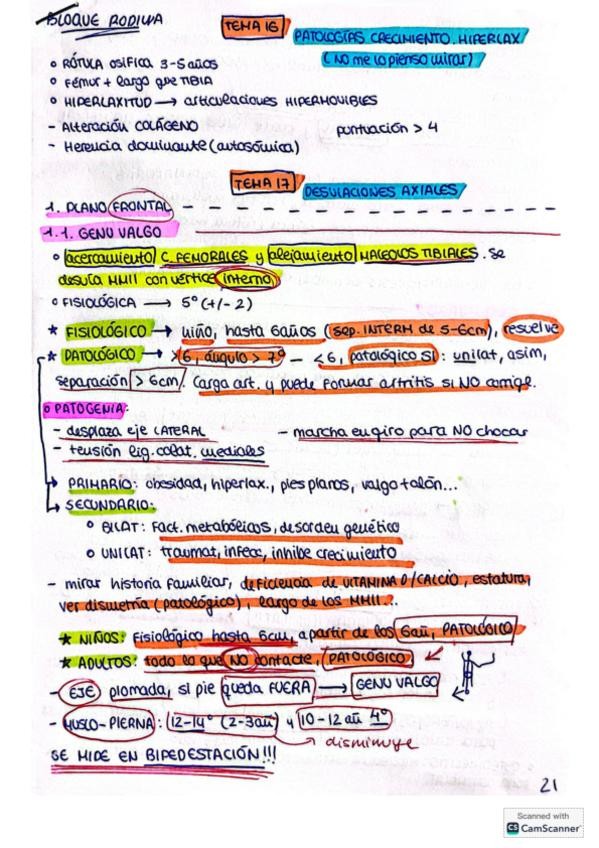 BLOQUE RODILLA
TEMA 16
PATOLOGÍAS CRECIMIENTO. HIPERLAX
(No me lo pienso mirar)
o RÓTULA osifica 3-5 años
o Fémur + largo que TIBIA
o HIPERLAXITUD → articulaciones HIPERMOVIBLES
- Alteración COLÁGENO
puntuación > 4
- Herencia dominante (autosómica)
TEMA 17
DESVIACIONES AXIALES
1. PLANO FRONTAL
1.1. GENU VALGO
o acercamiento C. FEMORALES y alejamiento MALEOLOS TIBIALES. Se
desvía MMII con vértice interno
o FISIOLÓGICA → 5º (+/- 2)
* FISIOLÓGICO → niño, hasta 6años (sep. INTERM de 5-6cm), resuelve
* PATOLÓGICO → >6, ángulo > 7º - <6, patológico SI: unilat, asim,
separación > 6cm. Carga art. y puede formar artritis SI NO corrige.
o PATOGENIA:
- desplaza eje LATERAL
- marcha en giro para NO chocar
- tensión lig. colat. mediales
PRIMARIO: obesidad, hiperlax., pies planos, valgo talón...
SECUNDARIO:
o BILAT: Fact. metabólicos, desorden genético
o UNILAT: traumat, infecc, inhibe crecimiento
- mirar historia familiar, deficiencia de VITAMINA D/CALCIO, estatura,
ver dismetría (patológico), largo de los MMII...
* NIÑOS: Fisiológico hasta 6cm, a partir de los 6añ, PATOLÓGICO
* ADULTOS: todo lo que NO contacte, PATOLÓGICO
- EJE plomada, si pie queda FUERA → GENU VALGO
- MUSLO-PIERNA: 12-14º (2-3añ) y 10-12 añ 4º
→ disminuye
SE MIDE EN BIPEDESTACIÓN!!!
21
Scanned with
CS CamScanner